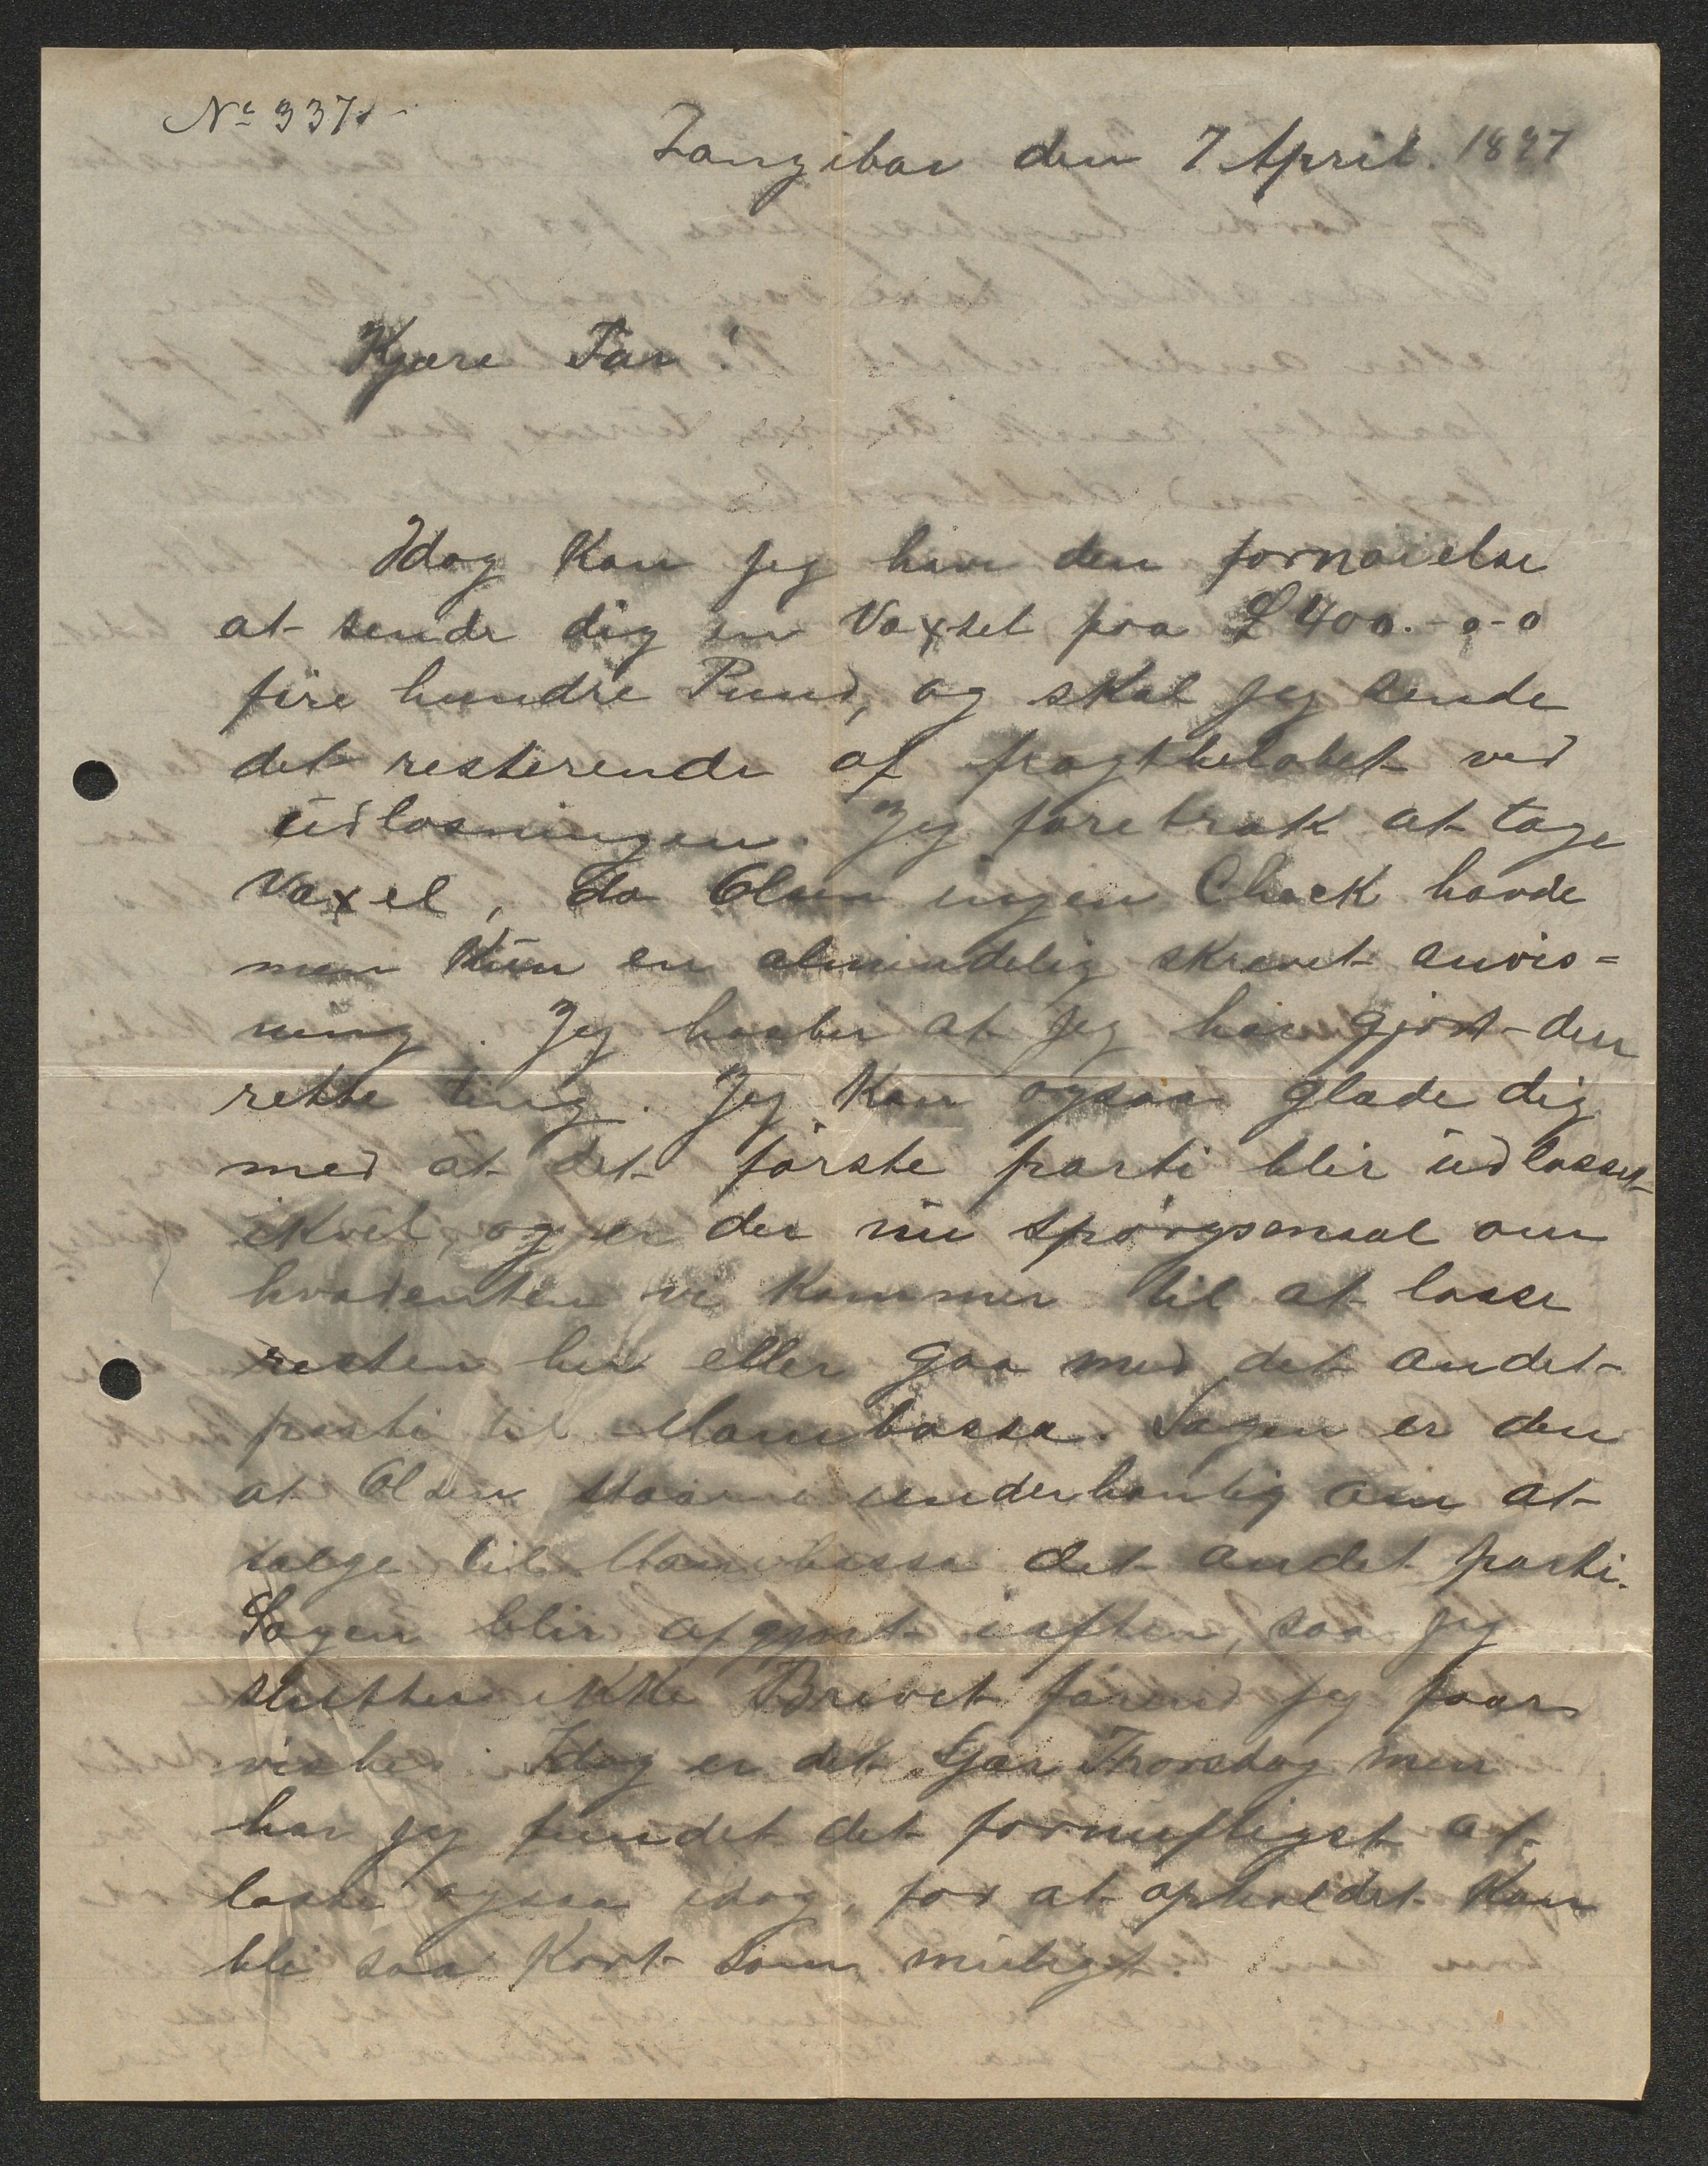 No 337
Zanzibar den 7 April. 1897
Kjære Far!
Idag kan jeg have den fornøielse
at sende dig en Vaxsel paa £ 400.-0-0
fire hundre Pund, og skal jeg sende
det resterende af fragtbeløbet ved
udlosningen. Jeg foretrak at tage
Vaxel, da Olsen ingen Chæck havde
men kun en almindelig skrevet anvis=
ning. Jeg haaber at jeg har gjort den
rette ting. Jeg kan ogsaa glæde dig
med at det første parti blir udlosset
ikvel, og er der nu spørgsmaal om
hvadenten vi kommer til at losse
resten her eller gaa med det andet
parti til Mambassa. Sagen er den
at Olsen staar i underhanling om at
sælge til Mambassa det andet parti.
Sagen blir afgjort iaften, saa jeg
slutter ikke Brevet førend jeg faar
vished. Idag er det Skjær Thorsdag men
har jeg fundet det fornuftigst at
losse ogsaa idag, for at opholdet kan
bli saa kort som muligt.